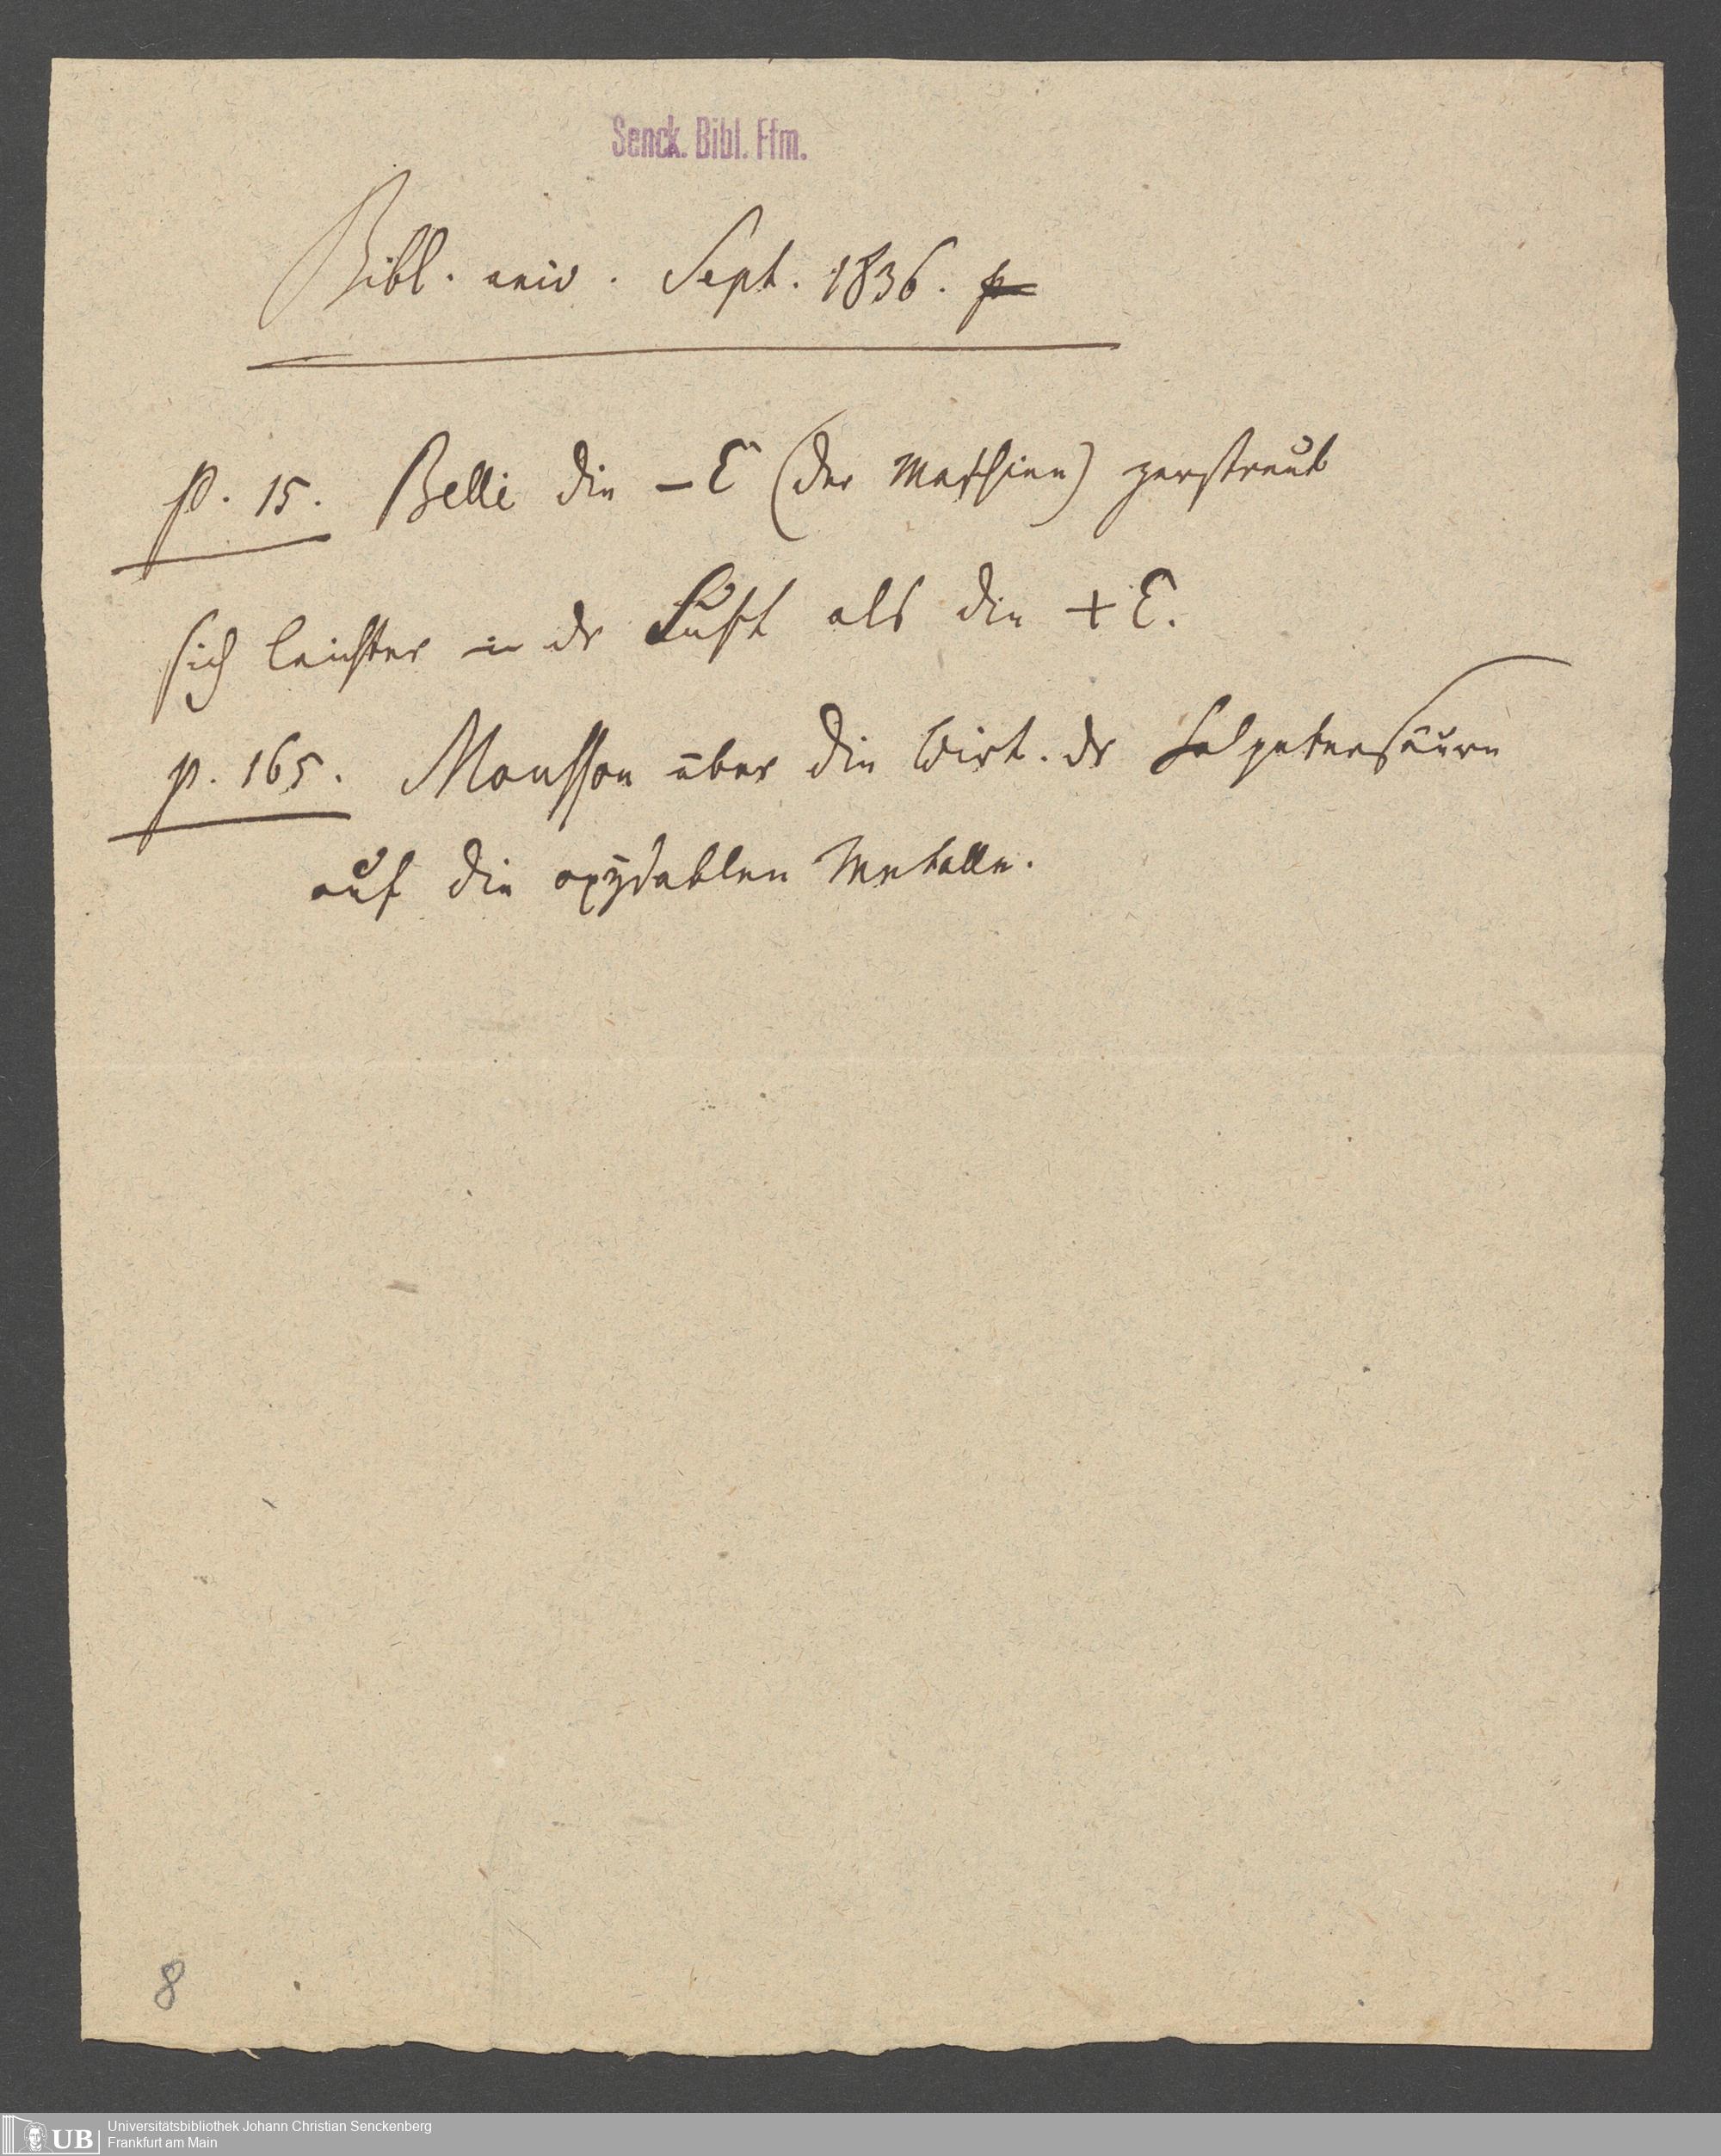 Senck. Bibl. Ffm.
Bibl. univ. Sept. 1836. p
p. 15. Belli die – E (der Maschine) zerstreut
sich leichter in dr Luft als die + E.
p. 165. Mousson über die Wirk. dr Salpetersäure
auf die oxydablen Metalle.
8
UB
Universitätsbibliothek Johann Christian Senckenberg
Frankfurt am Main